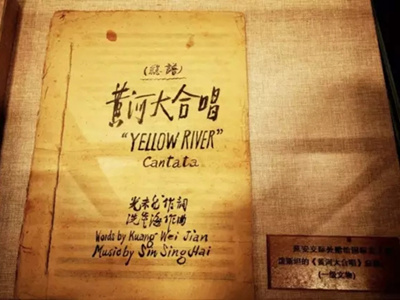 (總譜)
黄河大合唱
"YELLOW RIVER"
Cantata
光未然作詞
冼星海作曲
Words by Kuang Wei Jian
Music by Sin Sing Hai
的《黄河大合唱》
(一级文物)